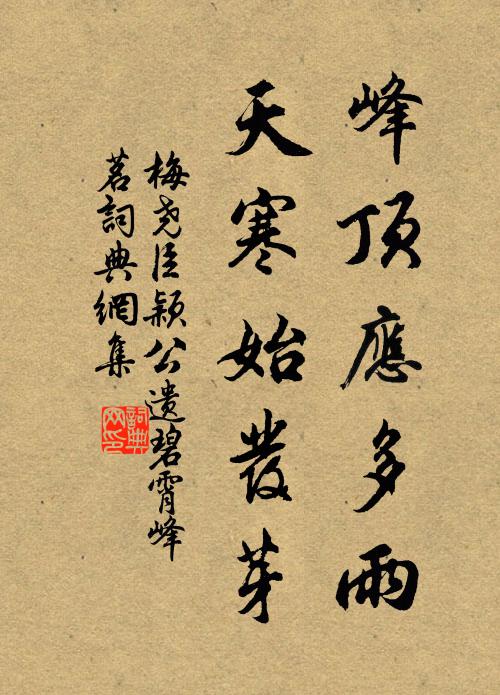 峰顶應多雨
天寒始發芽
梅尧臣颖公遗碧霄峰
茗詞典網集
詞典网印